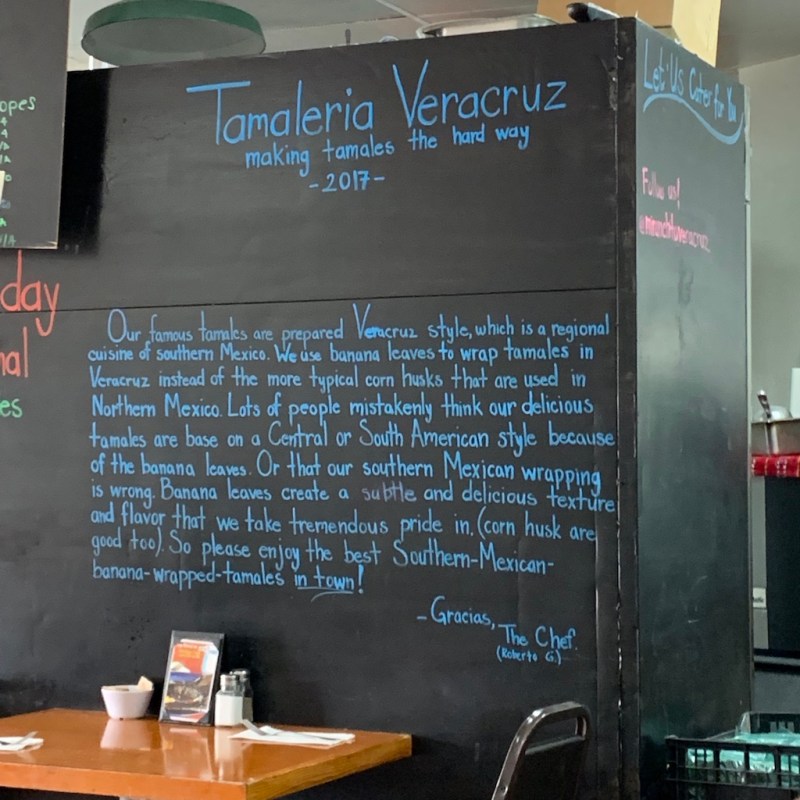 Tamaleria Veracruz
making tamales the hard way
-2017-
Our famous tamales are prepared Veracruz style, which is a regional
cuisine of southern Mexico. We use banana leaves to wrap tamales in
Veracruz instead of the more typical corn husks that are used in
Northern Mexico. Lots of people mistakenly think our delicious
tamales are base on a Central or South American style because
of the banana leaves. Or that our southern Mexican wrapping
is wrong. Banana leaves create a subtle and delicious texture
and flavor that we take tremendous pride in. (corn husk are
good too). So please enjoy the best Southern-Mexican-
banana-wrapped-tamales in town!
-Gracias,
The Chef.
(Roberto G.)
Let Us Cater for You
Follow us!
opes
day
nal
es